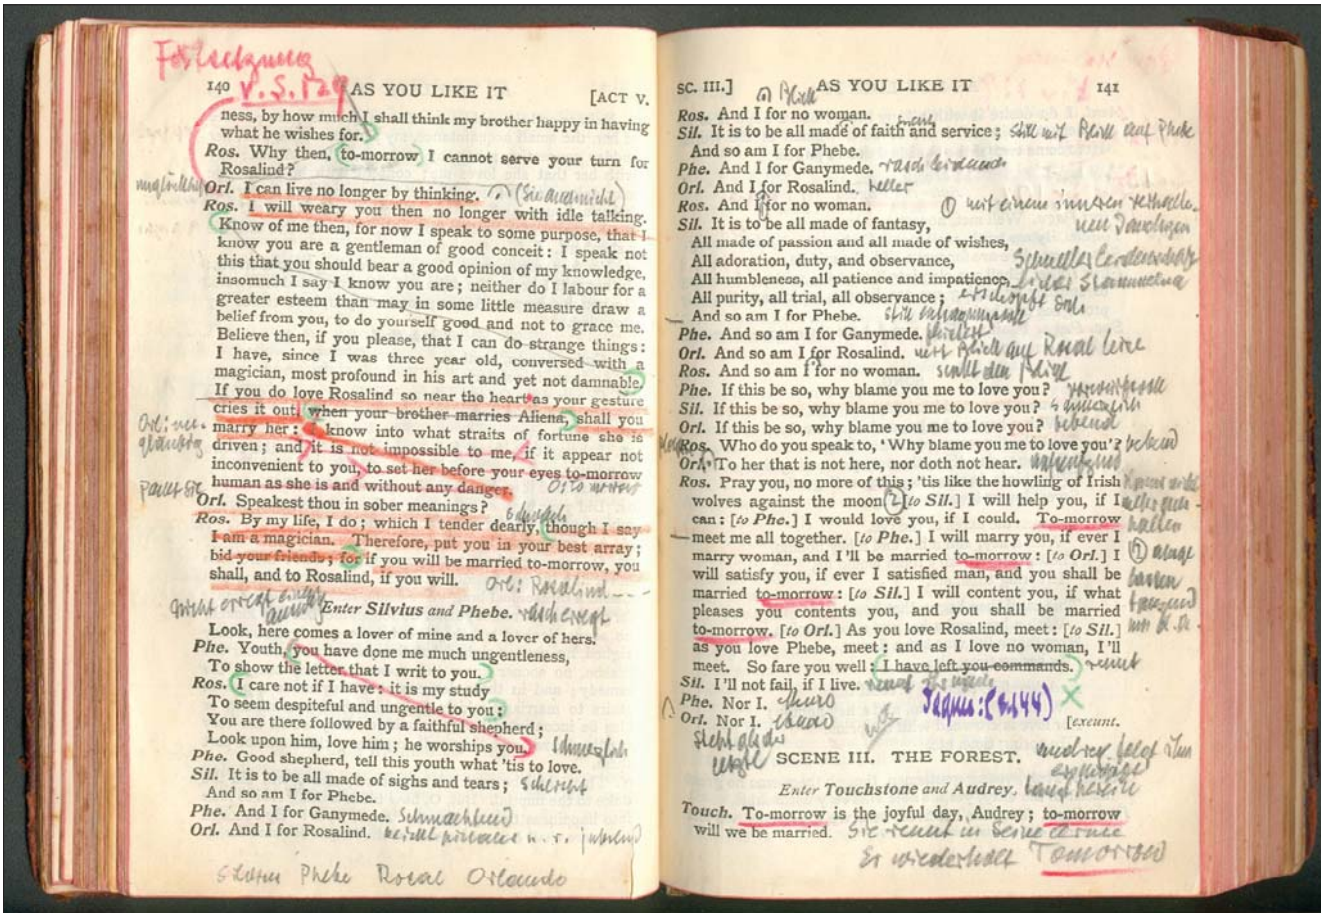 Fortsetzung
v. S. 129
140 AS YOU LIKE IT [ACT V.
ness, by how much I shall think my brother happy in having
what he wishes for.
Ros. Why then, to-morrow I cannot serve your turn for
Rosalind?
Orl. I can live no longer by thinking.
Ros. I will weary you then no longer with idle talking.
Know of me then, for now I speak to some purpose, that I
know you are a gentleman of good conceit: I speak not
this that you should bear a good opinion of my knowledge,
insomuch I say I know you are; neither do I labour for a
greater esteem than may in some little measure draw a
belief from you, to do yourself good and not to grace me.
Believe then, if you please, that I can do strange things:
I have, since I was three year old, conversed with a
magician, most profound in his art and yet not damnable.
If you do love Rosalind so near the heart as your gesture
cries it out, when your brother marries Aliena, shall you
marry her: I know into what straits of fortune she is
driven; and it is not impossible to me, if it appear not
inconvenient to you, to set her before your eyes to-morrow
human as she is and without any danger.
Orl. Speakest thou in sober meanings?
Ros. By my life, I do; which I tender dearly, though I say
I am a magician. Therefore, put you in your best array;
bid your friends; for if you will be married to-morrow, you
shall, and to Rosalind, if you will.
Orl: Rosalind - - -
Enter Silvius and Phebe. rasch erregt
Look, here comes a lover of mine and a lover of hers.
Phe. Youth, you have done me much ungentleness,
To show the letter that I writ to you.
Ros. I care not if I have: it is my study
To seem despiteful and ungentle to you:
You are there followed by a faithful shepherd;
Look upon him, love him; he worships you. schmerzlich
Phe. Good shepherd, tell this youth what 'tis to love.
Sil. It is to be all made of sighs and tears;
And so am I for Phebe.
Phe. And I for Ganymede. Schmachtend
Orl. And I for Rosalind.
Phebe Rosal Orlando
SC. III.] AS YOU LIKE IT 141
Blick
Ros. And I for no woman.
Sil. It is to be all made of faith and service; still mit Blick auf Phebe
And so am I for Phebe.
Phe. And I for Ganymede.
Orl. And I for Rosalind. heller
Ros. And I for no woman. mit einem inneren
Sil. It is to be all made of fantasy,
All made of passion and all made of wishes,
All adoration, duty, and observance,
All humbleness, all patience and impatience,
All purity, all trial, all observance; erschöpft
And so am I for Phebe. still
Phe. And so am I for Ganymede.
Orl. And so am I for Rosalind. mit Blick auf Rosal leise
Ros. And so am I for no woman. senkt den Blick
Phe. If this be so, why blame you me to love you? vorwurfsvoll
Sil. If this be so, why blame you me to love you?
Orl. If this be so, why blame you me to love you? bebend
Ros. Who do you speak to, 'Why blame you me to love you'? bebend
Orl. To her that is not here, nor doth not hear.
Ros. Pray you, no more of this; 'tis like the howling of Irish
wolves against the moon. [to Sil.] I will help you, if I
can: [to Phe.] I would love you, if I could. To-morrow
meet me all together. [to Phe.] I will marry you, if ever I
marry woman, and I'll be married to-morrow: [to Orl.] I
will satisfy you, if ever I satisfied man, and you shall be
married to-morrow: [to Sil.] I will content you, if what
pleases you contents you, and you shall be married
to-morrow. [to Orl.] As you love Rosalind, meet: [to Sil.]
as you love Phebe, meet: and as I love no woman, I'll
meet. So fare you well: I have left you commands. rennt
Sil. I'll not fail, if I live.
Phe. Nor I.
Orl. Nor I.
Jaques: (S. 144)
[exeunt.
SCENE III. THE FOREST.
Enter Touchstone and Audrey.
Touch. To-morrow is the joyful day, Audrey; to-morrow
will we be married. Sie rennt in seine Arme
Er wiederholt Tomorrow